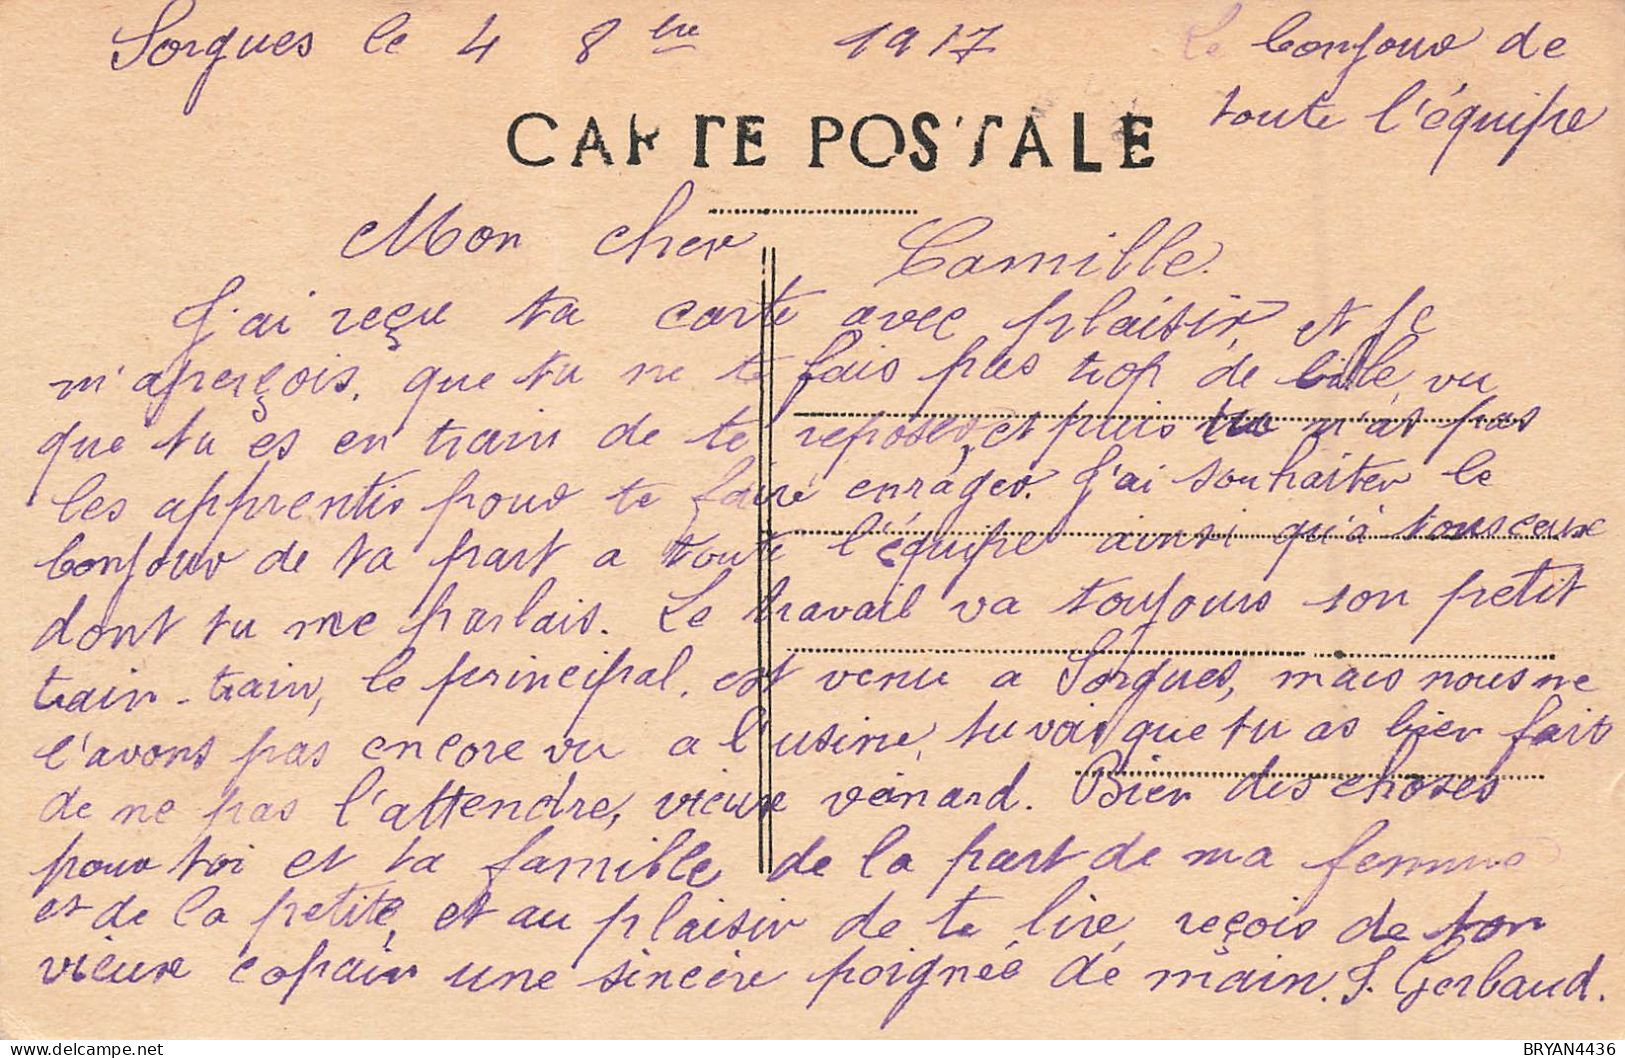 Sorgues le 4 8bre 1917
Le bonjour de
toute l'équipe
CARTE POSTALE
Mon cher Camille.
J'ai reçu ta carte avec plaisir, et je
m'aperçois, que tu ne te fais pas trop de bile, vu
que tu es en train de te reposer, et puis tu n'as pas
les apprentis pour te faire enrager. J'ai souhaiter le
bonjour de ta part a toute l'équipe ainsi qu'à tous ceux
dont tu me parlais. Le travail va toujours son petit
train-train, le principal, est venu a Sorgues, mais nous ne
l'avons pas encore vu a l'usine, tu vois que tu as bien fait
de ne pas l'attendre, vieux veinard. Bien des choses
pour toi et ta famille de la part de ma femme
et de la petite, et au plaisir de te lire, reçois de ton
vieux copain une sincère poignée de main. J. Gerbaud.
BRYAN4436